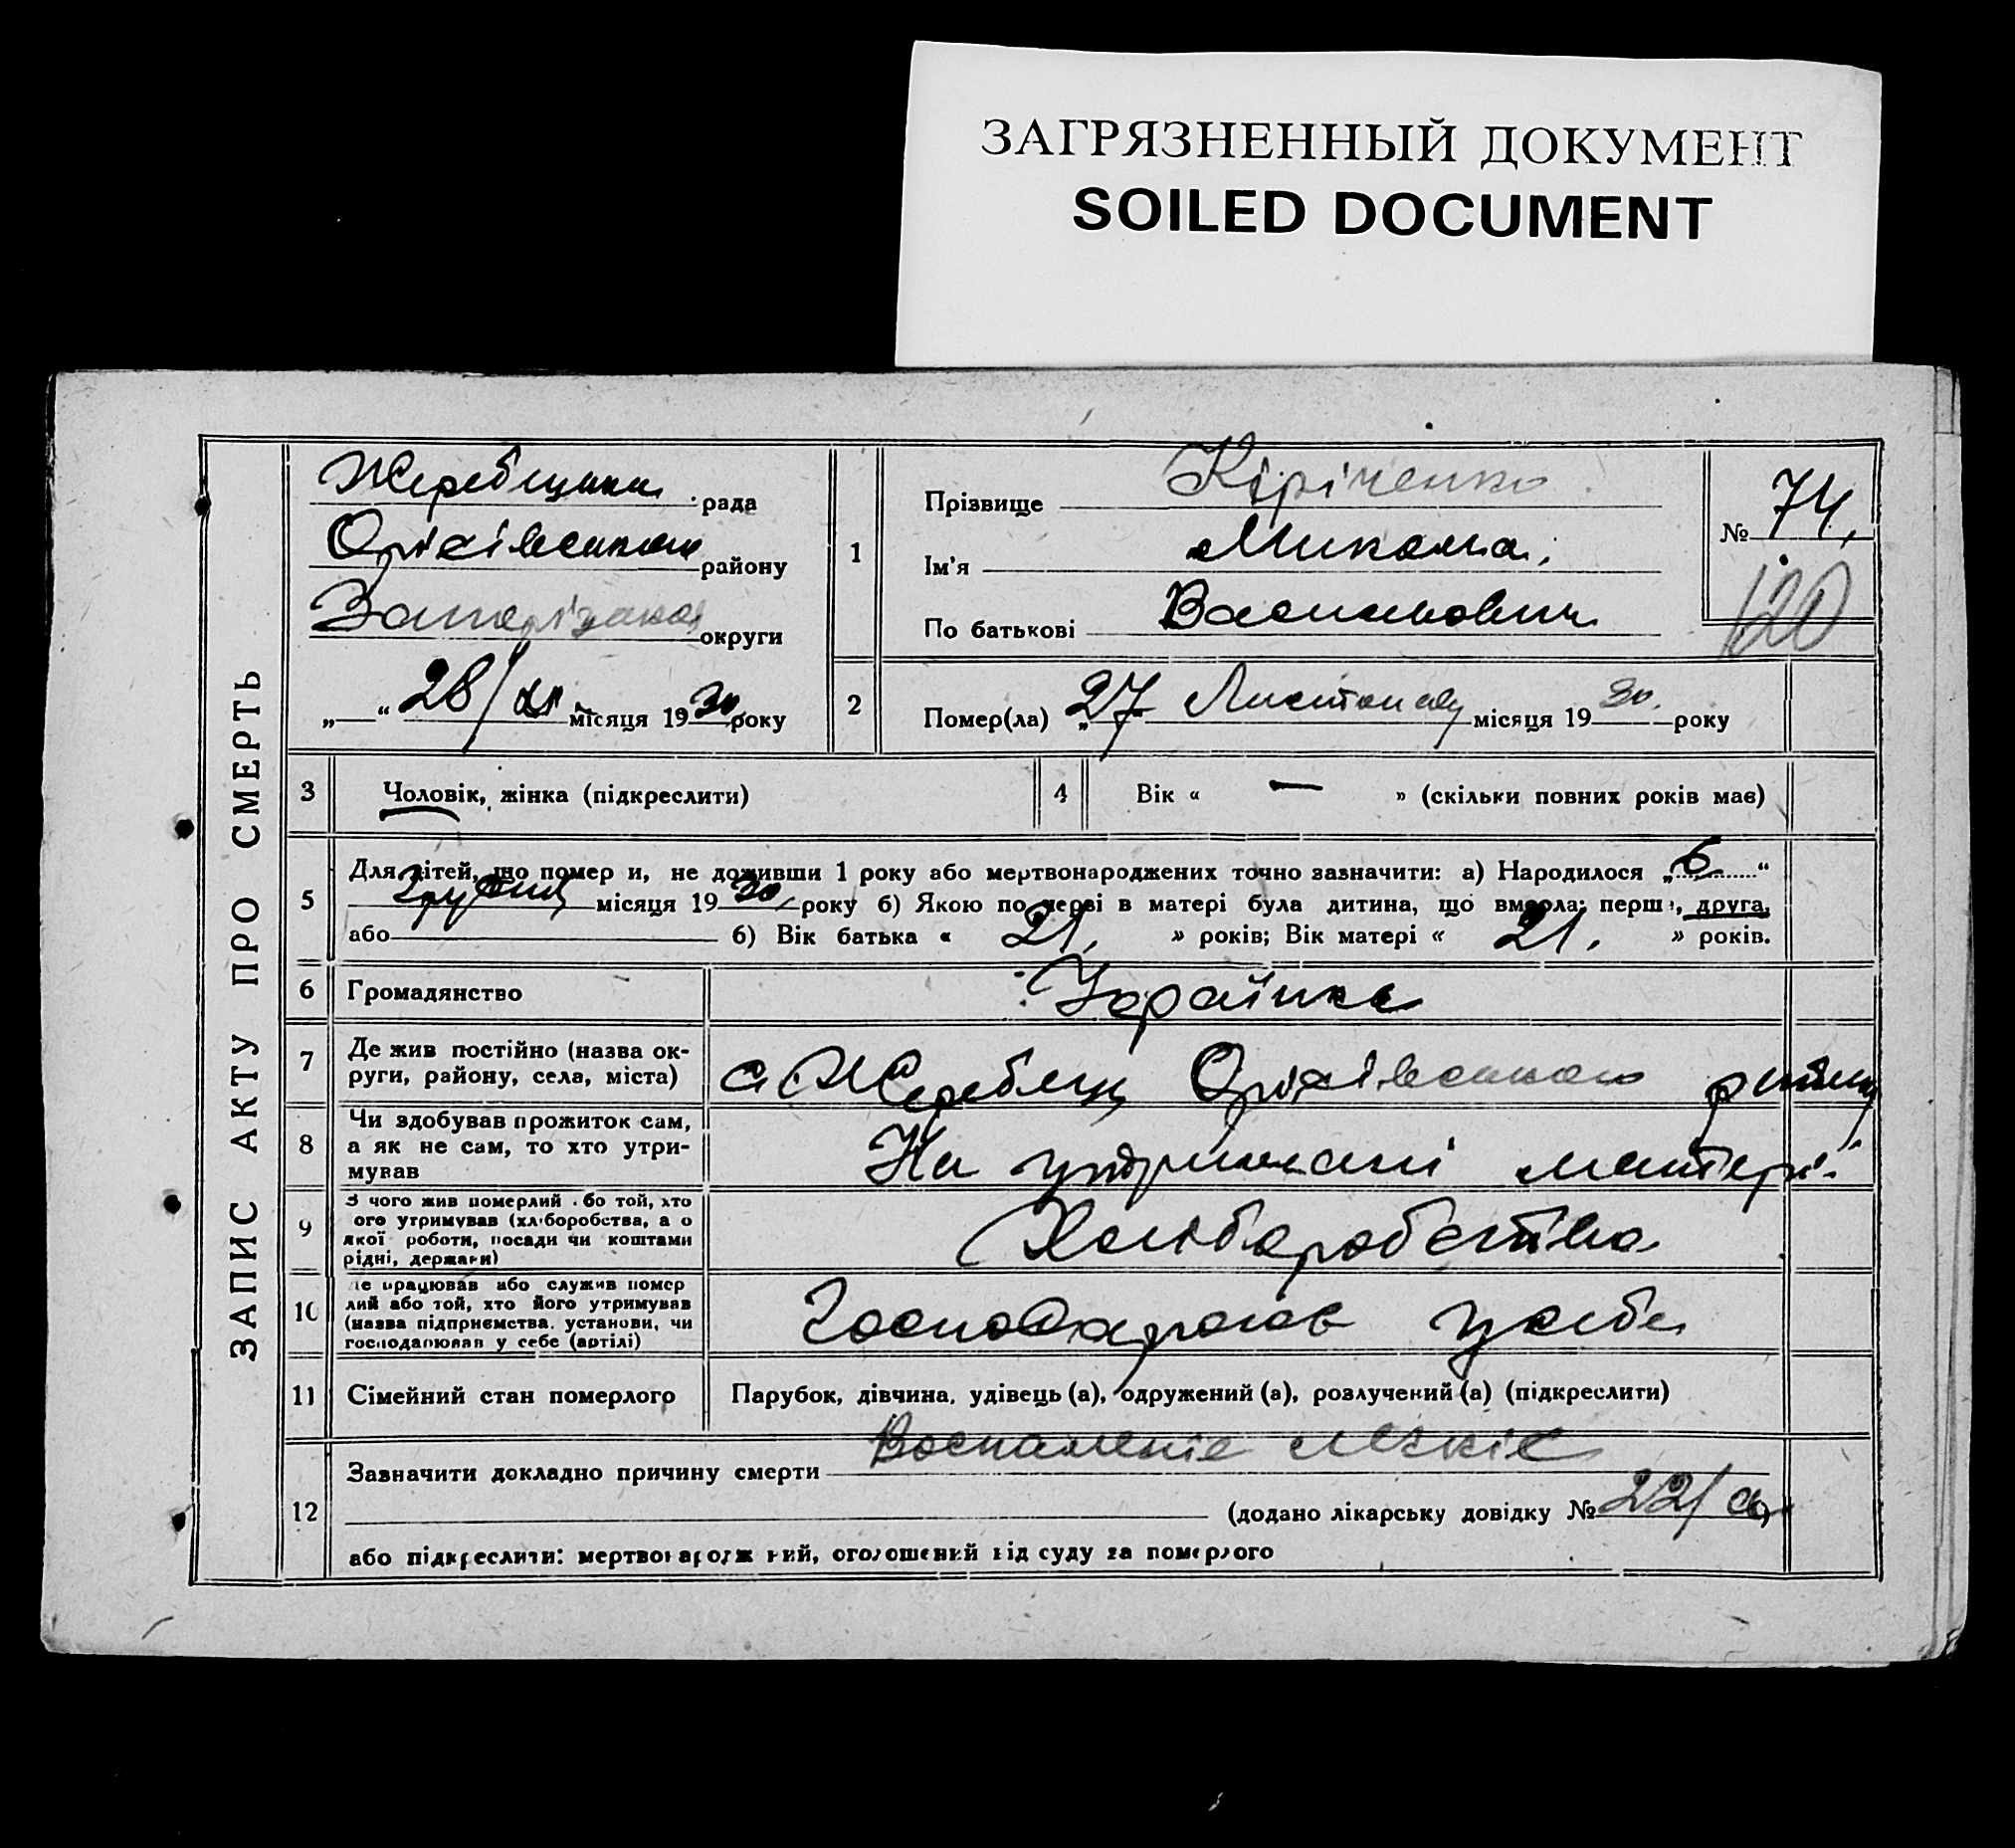 ЗАГРЯЗНЕННЫЙ ДОКУМЕНТ
SOILED DOCUMENT
ЗАПИС АКТУ ПРО СМЕРТЬ
Жеребецька рада
Оріхівського району
округи
„ “ 28/XI місяця 1930 року
1
Прізвище Кіріченко
Ім'я Микола
По батькові Васильович
№ 74.
120
2
Помер(ла) „27 Листопаду місяця 1930. року
3
Чоловік, жінка (підкреслити)
4
Вік « — » (скільки повних років має)
5
Для дітей, що помер и, не доживши 1 року або мертвонароджених точно зазначити: а) Народилося „6“
Грудня місяця 1930, року б) Якою по черзі в матері була дитина, що вмерла: перш, друга,
або б) Вік батька « 21. » років; Вік матері « 21. » років.
6
Громадянство
Україньс
7
Де жив постійно (назва ок-
руги, району, села, міста)
с. Жеребець Оріхівського району
8
Чи здобував прожиток сам,
а як не сам, то хто утри-
мував
На утримані матері
9
З чого жив померлий бо той, хто
ого утримував (хл боробства, а о
якої роботи, посади чи коштами
рідні, держави)
Хліборобства
10
е працював або служив помер
лий або той, хто його утримував
(назва підприємства, установи, чи
господарював у себе (артілі)
Господарював у себе
11
Сімейний стан померлого
Парубок, дівчина, удівець (а), одружений (а), розлучений (а) (підкреслити)
12
Зазначити докладно причину смерти Воспаленіє легкіх
(додано лікарську довідку № 22/
або підкреслити: мертвонародж ний, оголошений від суду за померлого